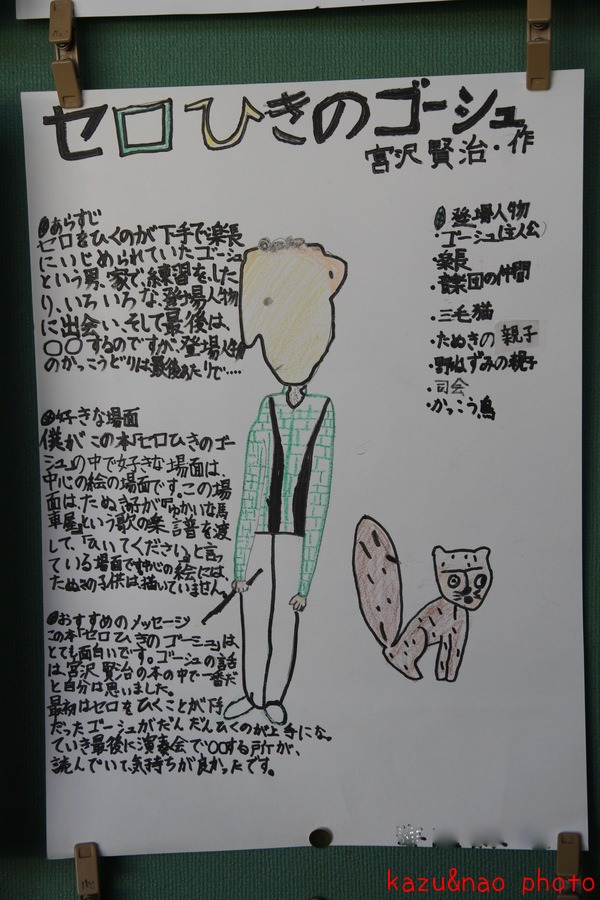 セロひきのゴーシュ
宮沢賢治・作
●あらすじ
セロをひくのが下手で、楽長
にいじめられていたゴーシュ
という男、家で、練習をした
り、いろいろな、登場人物
に出会い、そして最後は、
〇〇するのですが、登場人物
のかっこうどりは最後あたりで‥‥
●好きな場面
僕がこの本「セロひきのゴー
シュ」の中で好きな場面は、
中心の絵の場面です。この場
面は、たぬき子が『ゆかいな馬
車屋』という歌の楽譜を渡
して、「ひいてください」と言っ
ている場面です中心の絵には、
たぬきの子供は描いていません。
●おすすめのメッセージ
この本「セロひきのゴーシュ」は、
とても面白いです。ゴーシュの話
は、宮沢賢治の本の中で一番だ
と自分は思いました。
最初はセロをひくことが下手
だったゴーシュがだんだんひくのが上手にな。
ていき最後に演奏会で〇〇する所が、
読んでいて気持ちが良かったです。
●登場人物
・ゴーシュ(主人公)
・楽長
・音楽団の仲間
・三毛猫
・たぬきの親子
・野ねずみの親子
・司会
・かっこう鳥
kazu&nao photo